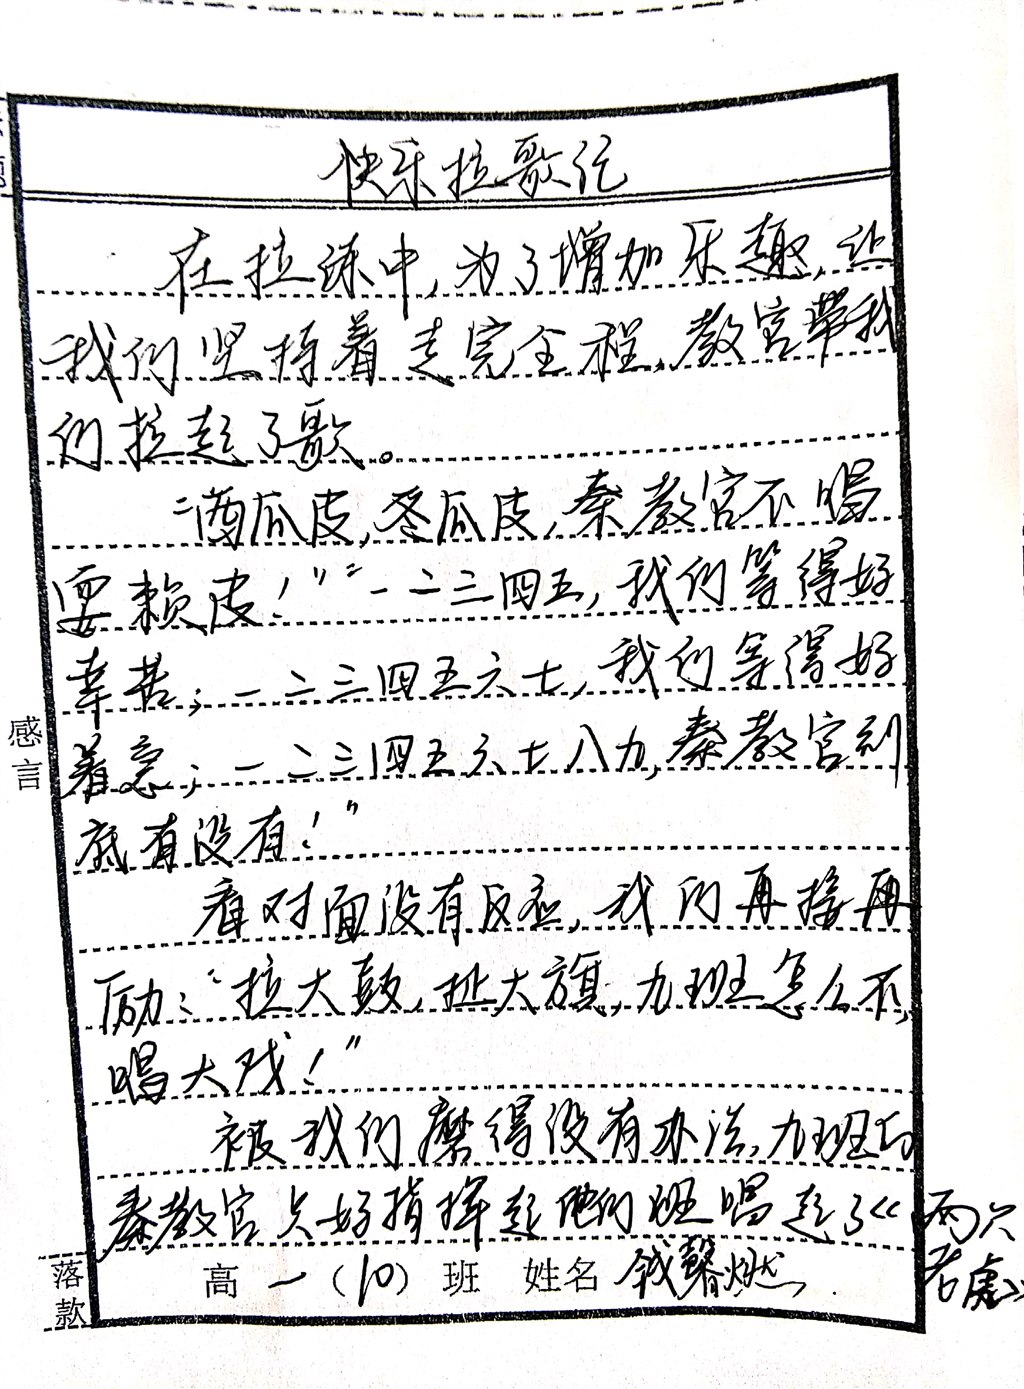 快乐拉歌记
在拉练中,为了增加乐趣,让
我们坚持着走完全程,教官带我
们拉起了歌。
“西瓜皮,冬瓜皮,秦教官不唱
耍赖皮!”“一二三四五,我们等得好
辛苦;一二三四五六七,我们等得好
着急;一二三四五六七八九,秦教官到
底有没有!”
看对面没有反应,我们再接再
厉:“拉大鼓,扯大旗,九班怎么不
唱大戏!”
被我们磨得没有办法,九班的
秦教官只好指挥起他们班唱起了《两只
老虎》
感言
落款
高一(10)班 姓名 钱馨燃